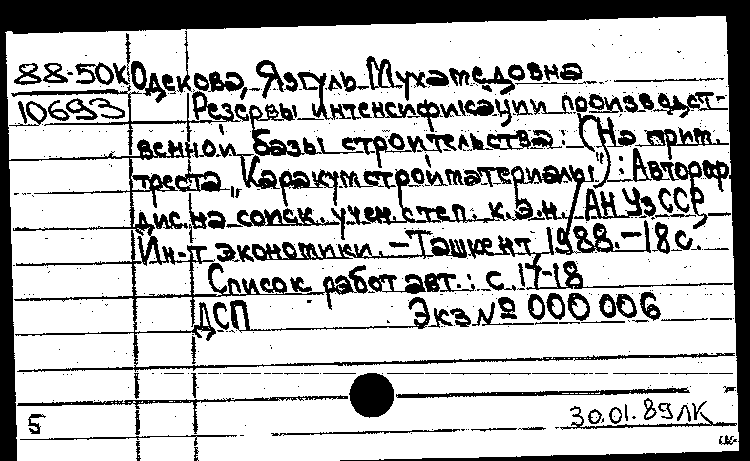 88-50к Одекова, Язгуль Мухамедовна
10693 Резервы интенсификации производст-
венной базы строительства: (На прим.
треста "Каракумстройматериалы"): Автореф.
дис. на соиск. учен. степ. к.э.н. / АН УзССР,
Ин-т экономики. - Ташкент, 1988. - 18 с.
Список работ авт.: с. 17-18
ДСП Экз № 000 006
5 30.01.89 ЛК